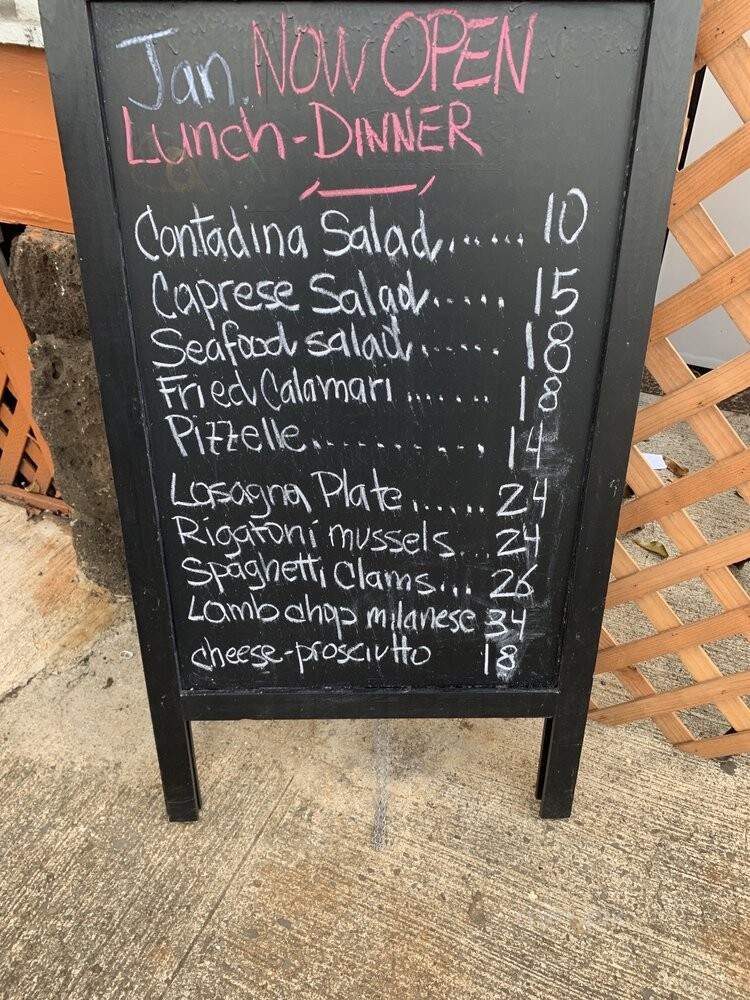 Jan. NOW OPEN
Lunch-DINNER
Contadina Salad...... 10
Caprese Salad..... 15
Seafood salad...... 18
Fried Calamari ...... 18
Pizzelle.......... 14
Lasagna Plate...... 24
Rigatoni mussels... 24
Spaghetti Clams... 26
Lamb chop milanese 34
cheese-prosciutto 18